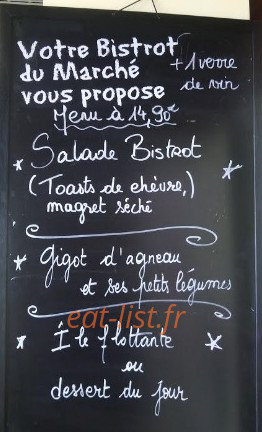 Votre Bistrot
du Marché
vous propose
+ 1 verre
de vin
Menu à 14,90€
Salade Bistrot
(Toasts de chèvre,)
magret séché
Gigot d'agneau
et ses petits légumes
eat-list.fr
Île flottante
ou
dessert du jour